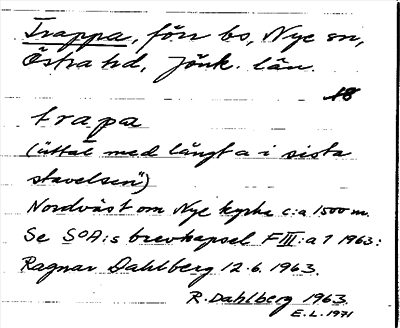 Trappa, förr bs, Nye sn,
Östra hd, Jönk. län.
18
trapa
(uttal med långt a i sista
stavelsen")
Nordväst om Nye kyrka c:a 1500 m.
Se SOA:s brevkapsel F III:a 7 1963:
Ragnar Dahlberg 12.6.1963.
R. Dahlberg 1963.
E.L. 1971